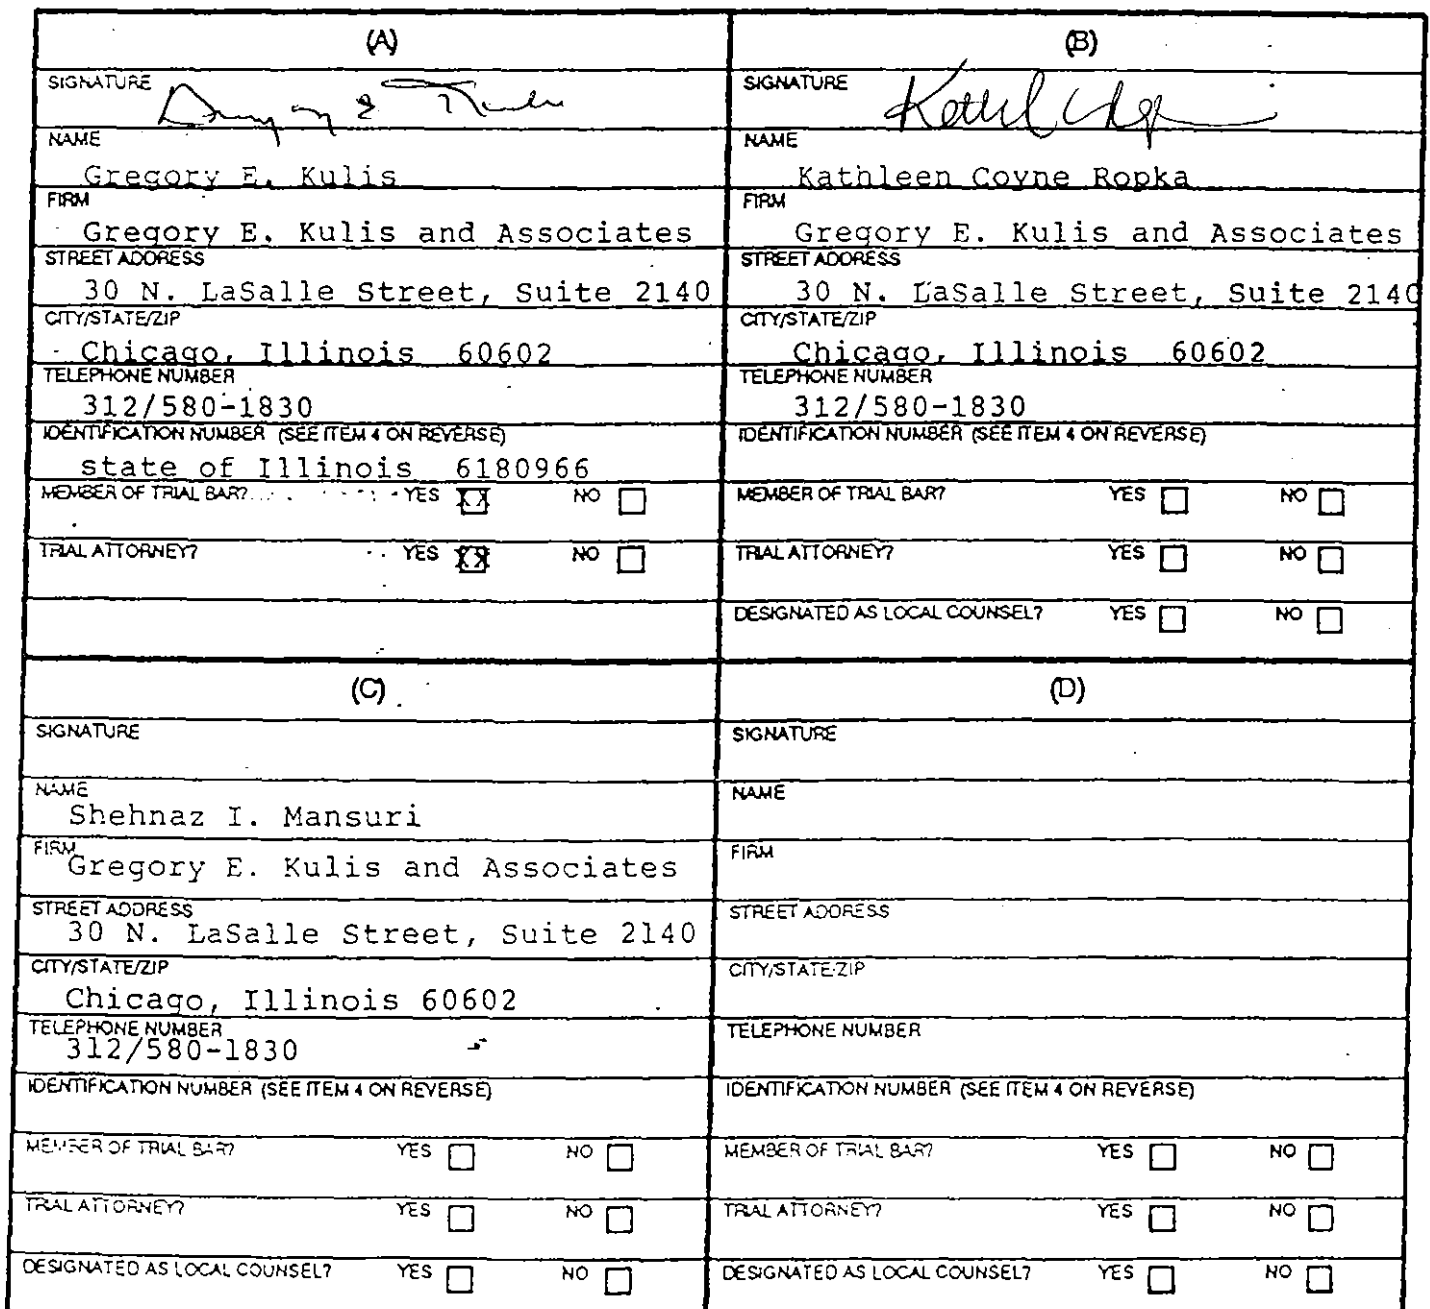 (A)
SIGNATURE
NAME
Gregory E. Kulis
FIRM
Gregory E. Kulis and Associates
STREET ADDRESS
30 N. LaSalle Street, Suite 2140
CITY/STATE/ZIP
Chicago, Illinois 60602
TELEPHONE NUMBER
312/580-1830
IDENTIFICATION NUMBER (SEE ITEM 4 ON REVERSE)
state of Illinois 6180966
MEMBER OF TRIAL BAR? YES XX NO
TRIAL ATTORNEY? YES XX NO
(B)
SIGNATURE
NAME
Kathleen Coyne Ropka
FIRM
Gregory E. Kulis and Associates
STREET ADDRESS
30 N. LaSalle Street, Suite 2140
CITY/STATE/ZIP
Chicago, Illinois 60602
TELEPHONE NUMBER
312/580-1830
IDENTIFICATION NUMBER (SEE ITEM 4 ON REVERSE)
MEMBER OF TRIAL BAR? YES NO
TRIAL ATTORNEY? YES NO
DESIGNATED AS LOCAL COUNSEL? YES NO
(C)
SIGNATURE
NAME
Shehnaz I. Mansuri
FIRM
Gregory E. Kulis and Associates
STREET ADDRESS
30 N. LaSalle Street, Suite 2140
CITY/STATE/ZIP
Chicago, Illinois 60602
TELEPHONE NUMBER
312/580-1830
IDENTIFICATION NUMBER (SEE ITEM 4 ON REVERSE)
MEMBER OF TRIAL BAR? YES NO
TRIAL ATTORNEY? YES NO
DESIGNATED AS LOCAL COUNSEL? YES NO
(D)
SIGNATURE
NAME
FIRM
STREET ADDRESS
CITY/STATE/ZIP
TELEPHONE NUMBER
IDENTIFICATION NUMBER (SEE ITEM 4 ON REVERSE)
MEMBER OF TRIAL BAR? YES NO
TRIAL ATTORNEY? YES NO
DESIGNATED AS LOCAL COUNSEL? YES NO